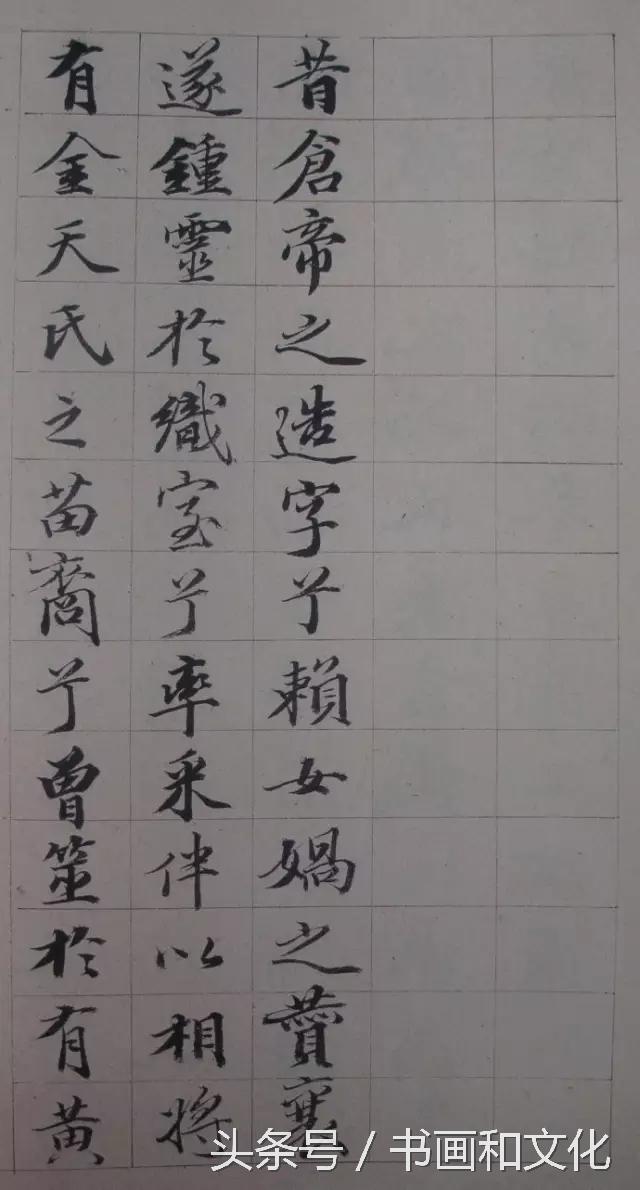 昔倉帝之造字兮賴女媧之贊襄
遂鍾靈於織室兮率采伴以相將
有金天氏之苗裔兮曾筮於有黃
头条号 / 书画和文化